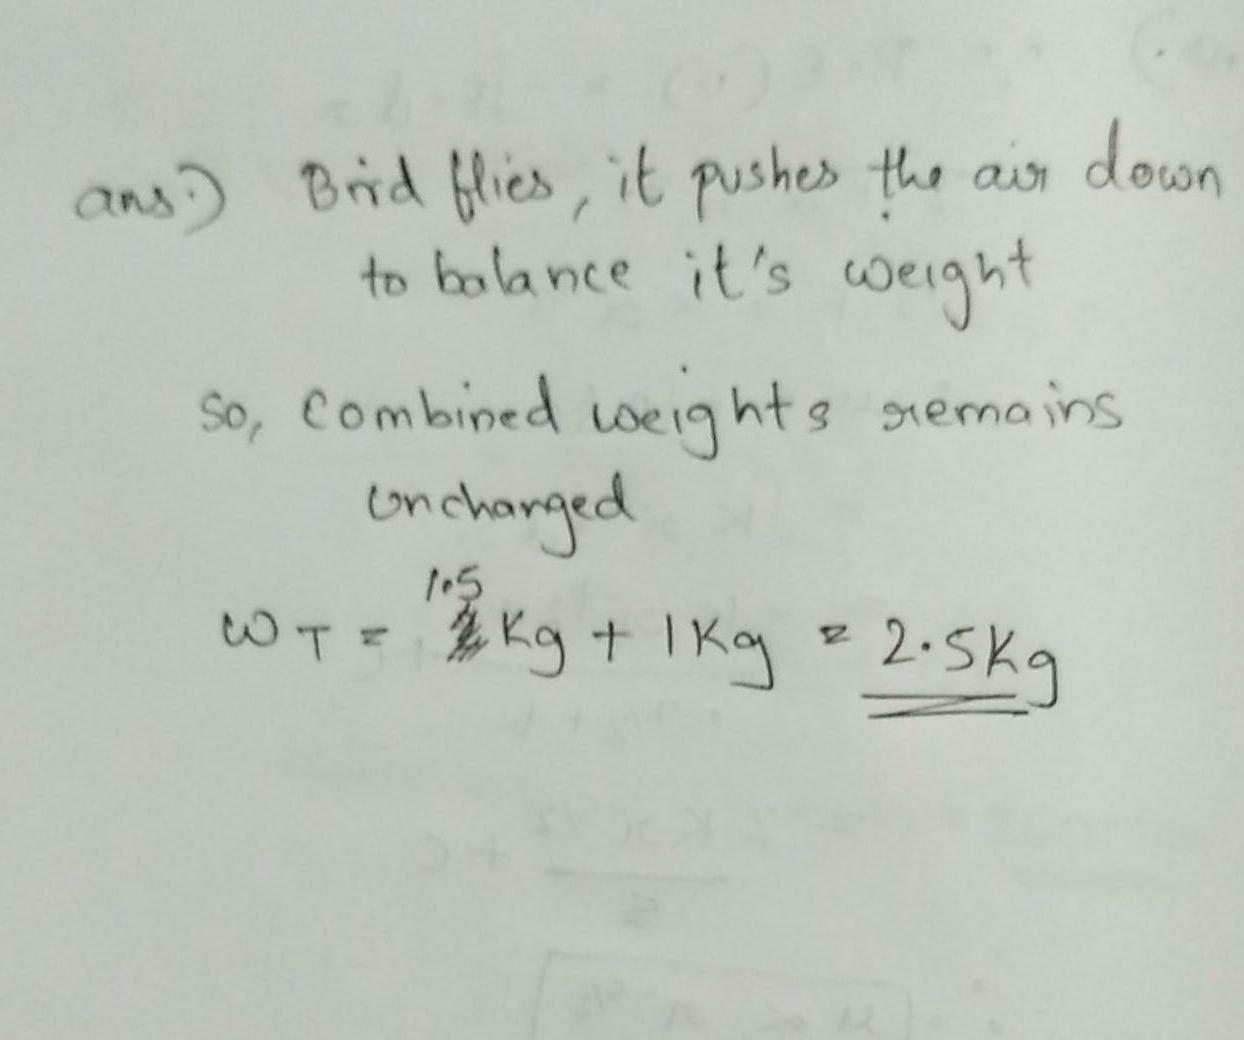 ans:) Bird flies, it pushes the air down
to balance it's weight
so, combined weights remains
unchanged
1.5
WT = Kg + 1Kg = 2.5Kg